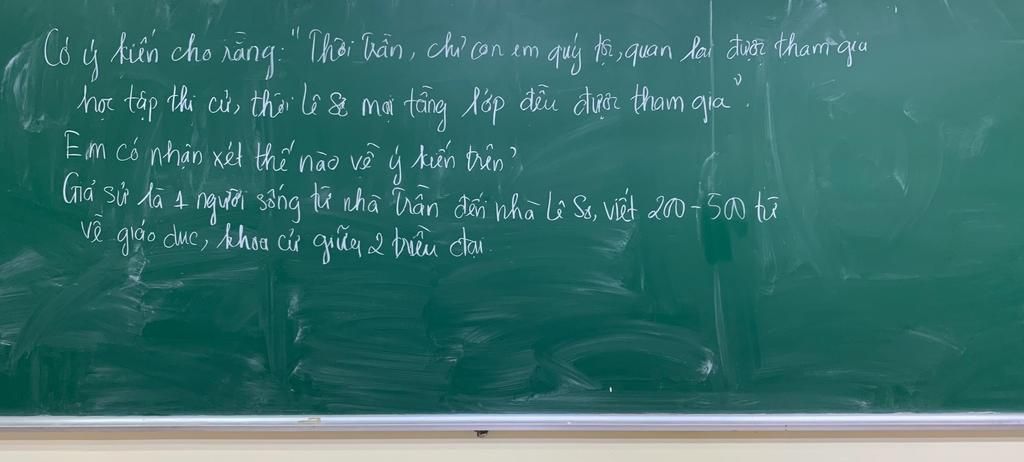 Có ý kiến cho rằng: "Thời Trần, chỉ con em quý tộc, quan lại được tham gia
học tập thi cử, thời Lê Sơ mọi tầng lớp đều được tham gia".
Em có nhận xét thế nào về ý kiến trên?
Giả sử là 1 người sống từ nhà Trần đến nhà Lê Sơ, viết 200 - 500 từ
về giáo dục, khoa cử giữa 2 triều đại.